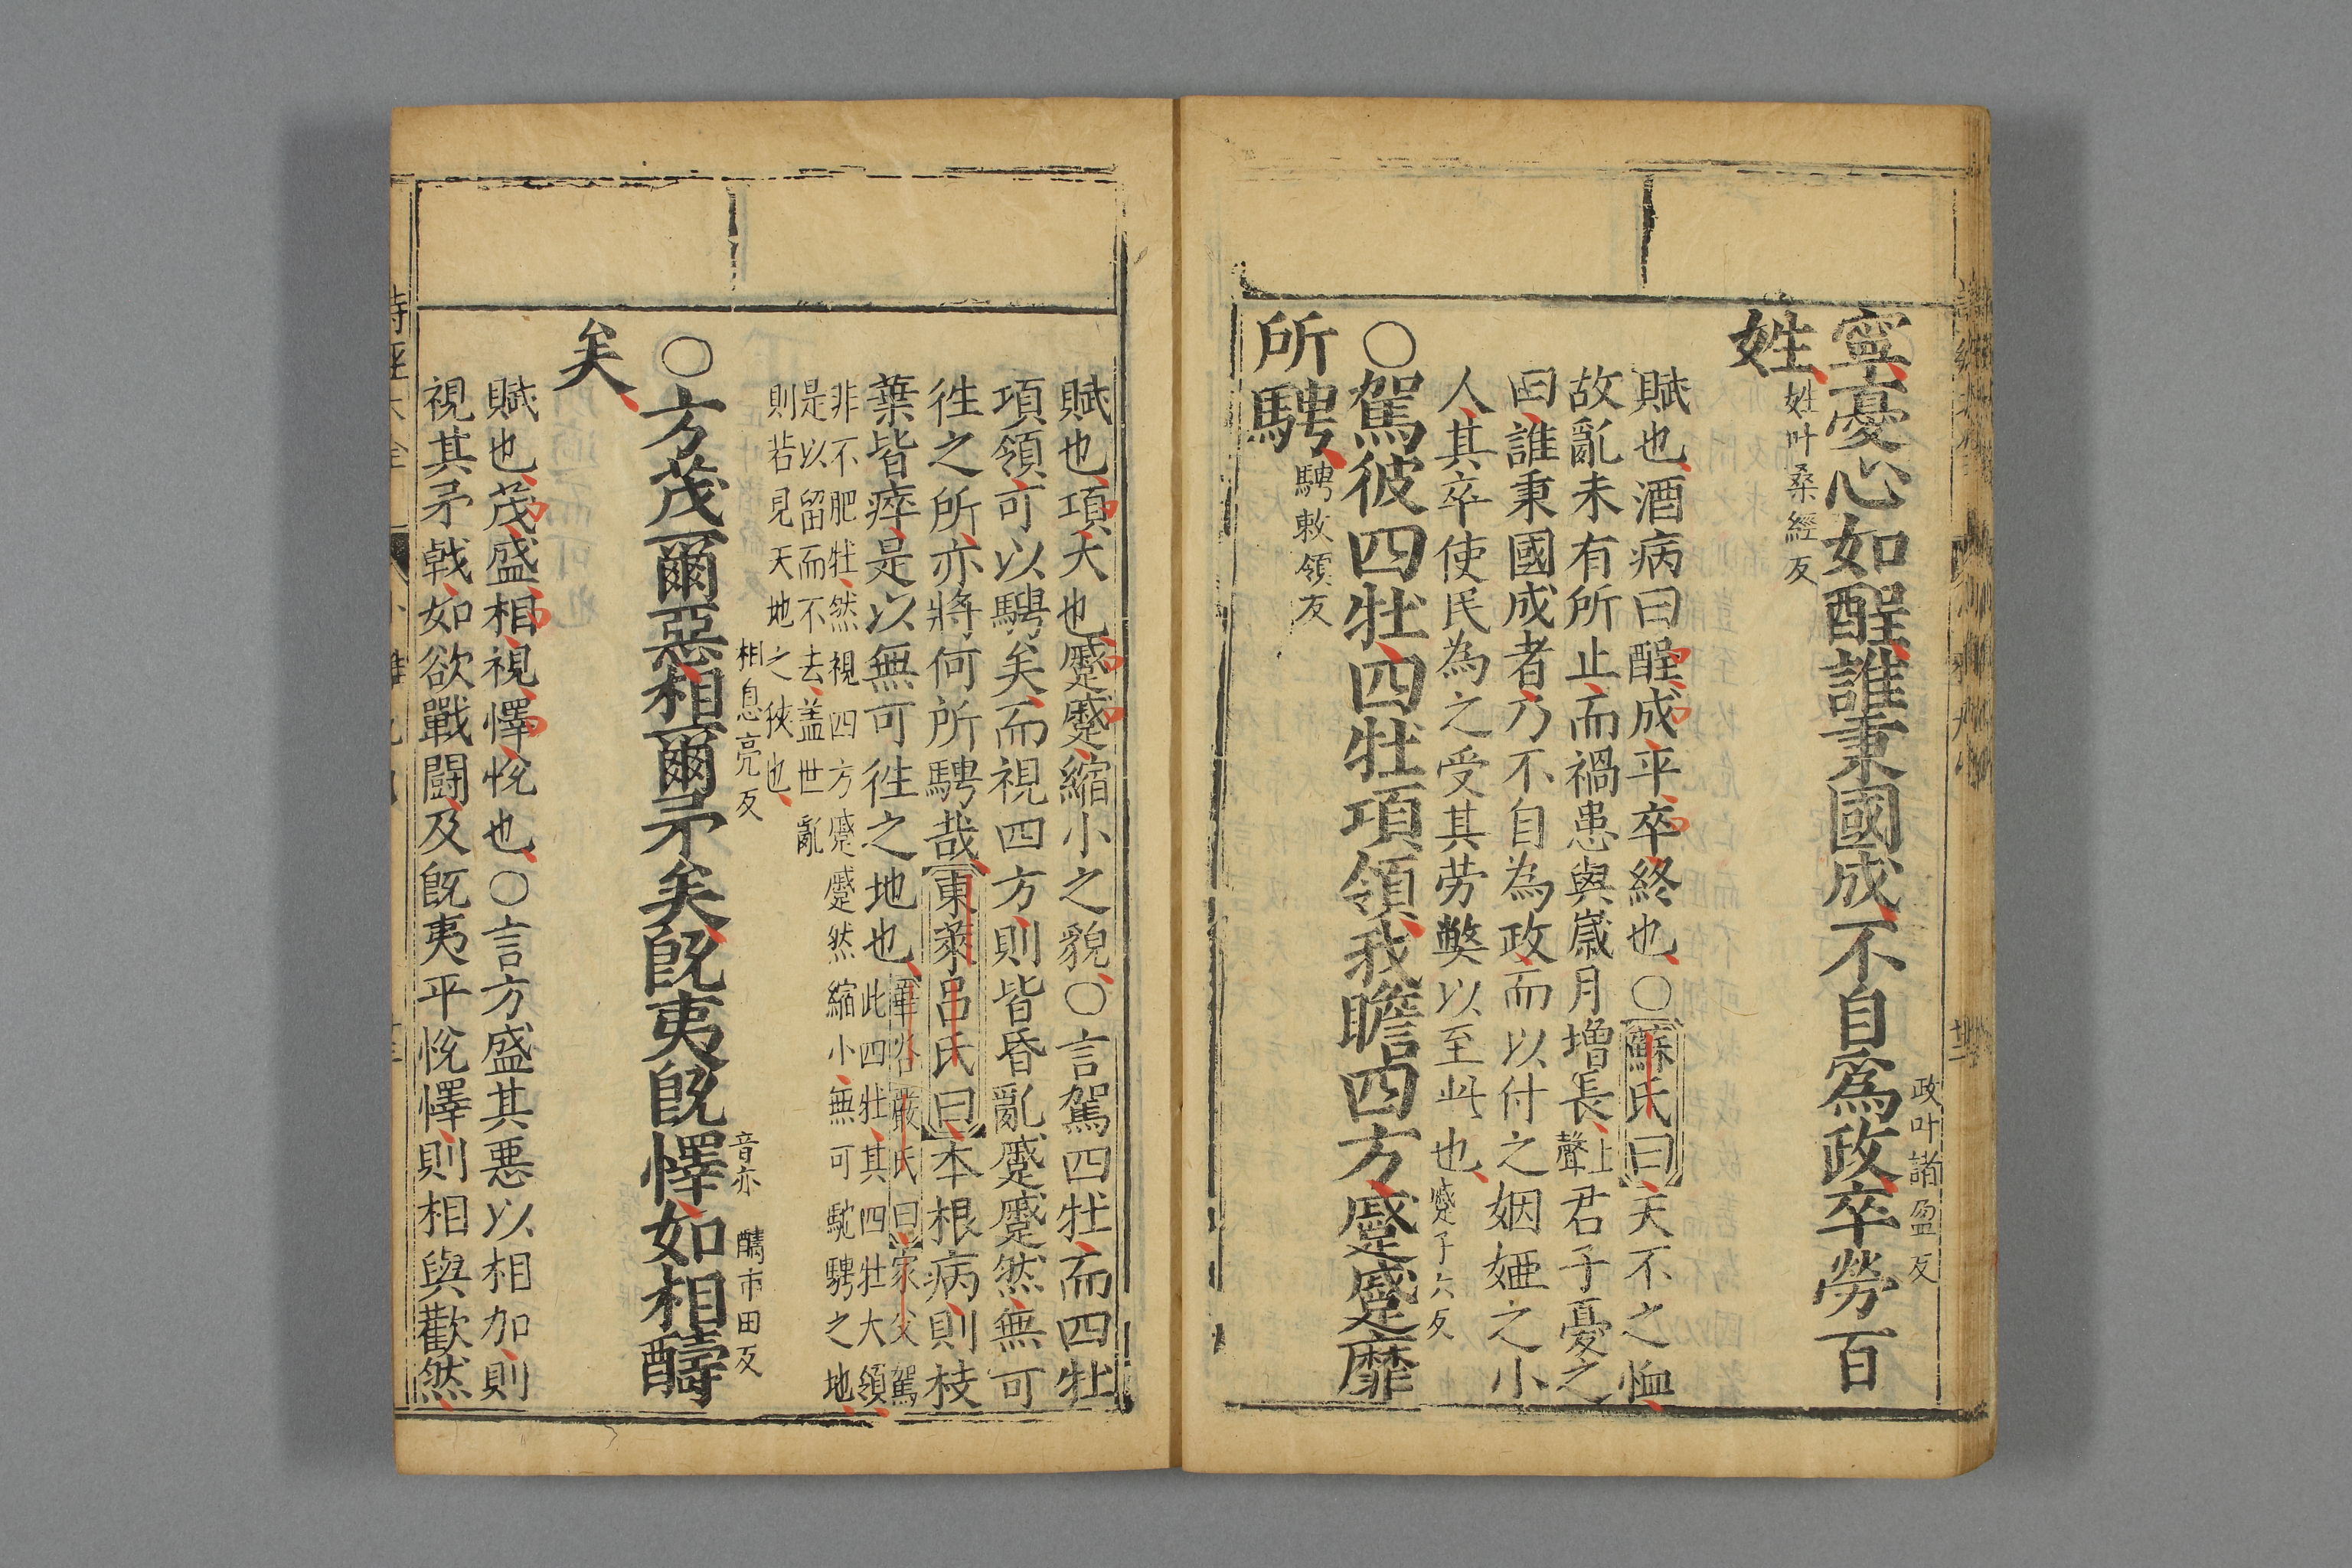 寧憂心如酲誰秉國成不自爲政卒勞百
政叶諸盈反
姓
姓叶桑經反
賦也酒病曰酲成平卒終也○蘇氏曰天不之恤
故亂未有所止而禍患與歲月增長上聲君子憂之
曰誰秉國成者乃不自為政而以付之姻婭之小
人其卒使民為之受其劳獘以至此也
蹙子六反
○駕彼四牡四牡項領我瞻四方蹙蹙靡
所騁
騁敕領反
賦也項大也蹙蹙縮小之貌○言駕四牡而四牡
項領可以騁矣而視四方則皆昏亂蹙蹙然無可
徃之所亦將何所騁哉東萊呂氏曰本根病則枝
葉皆瘁是以無可徃之地也華谷嚴氏曰家父駕
此四牡其四牡大領
非不肥牡然視四方蹙蹙然縮小無可馳騁之地
是以留而不去盖世亂
則若見天地之狹也
相息亮反
音亦
醻市田反
○方茂爾惡相爾矛矣旣夷旣懌如相醻
矣
賦也茂盛相視懌悅也○言方盛其悪以相加則
視其矛戟如欲戰闘及旣夷平悅懌則相與歡然